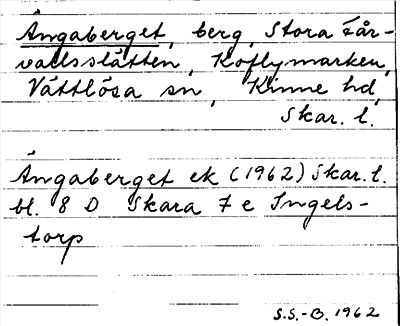 Ängaberget, berg, Stora Får-
vallsslätten, Koflymarken,
Vättlösa sn, Kinne hd,
Skar. l.
Ängaberget ek (1962) Skar. l.
bl. 8 D Skara 7 e Ingels-
torp
S.S.-B. 1962